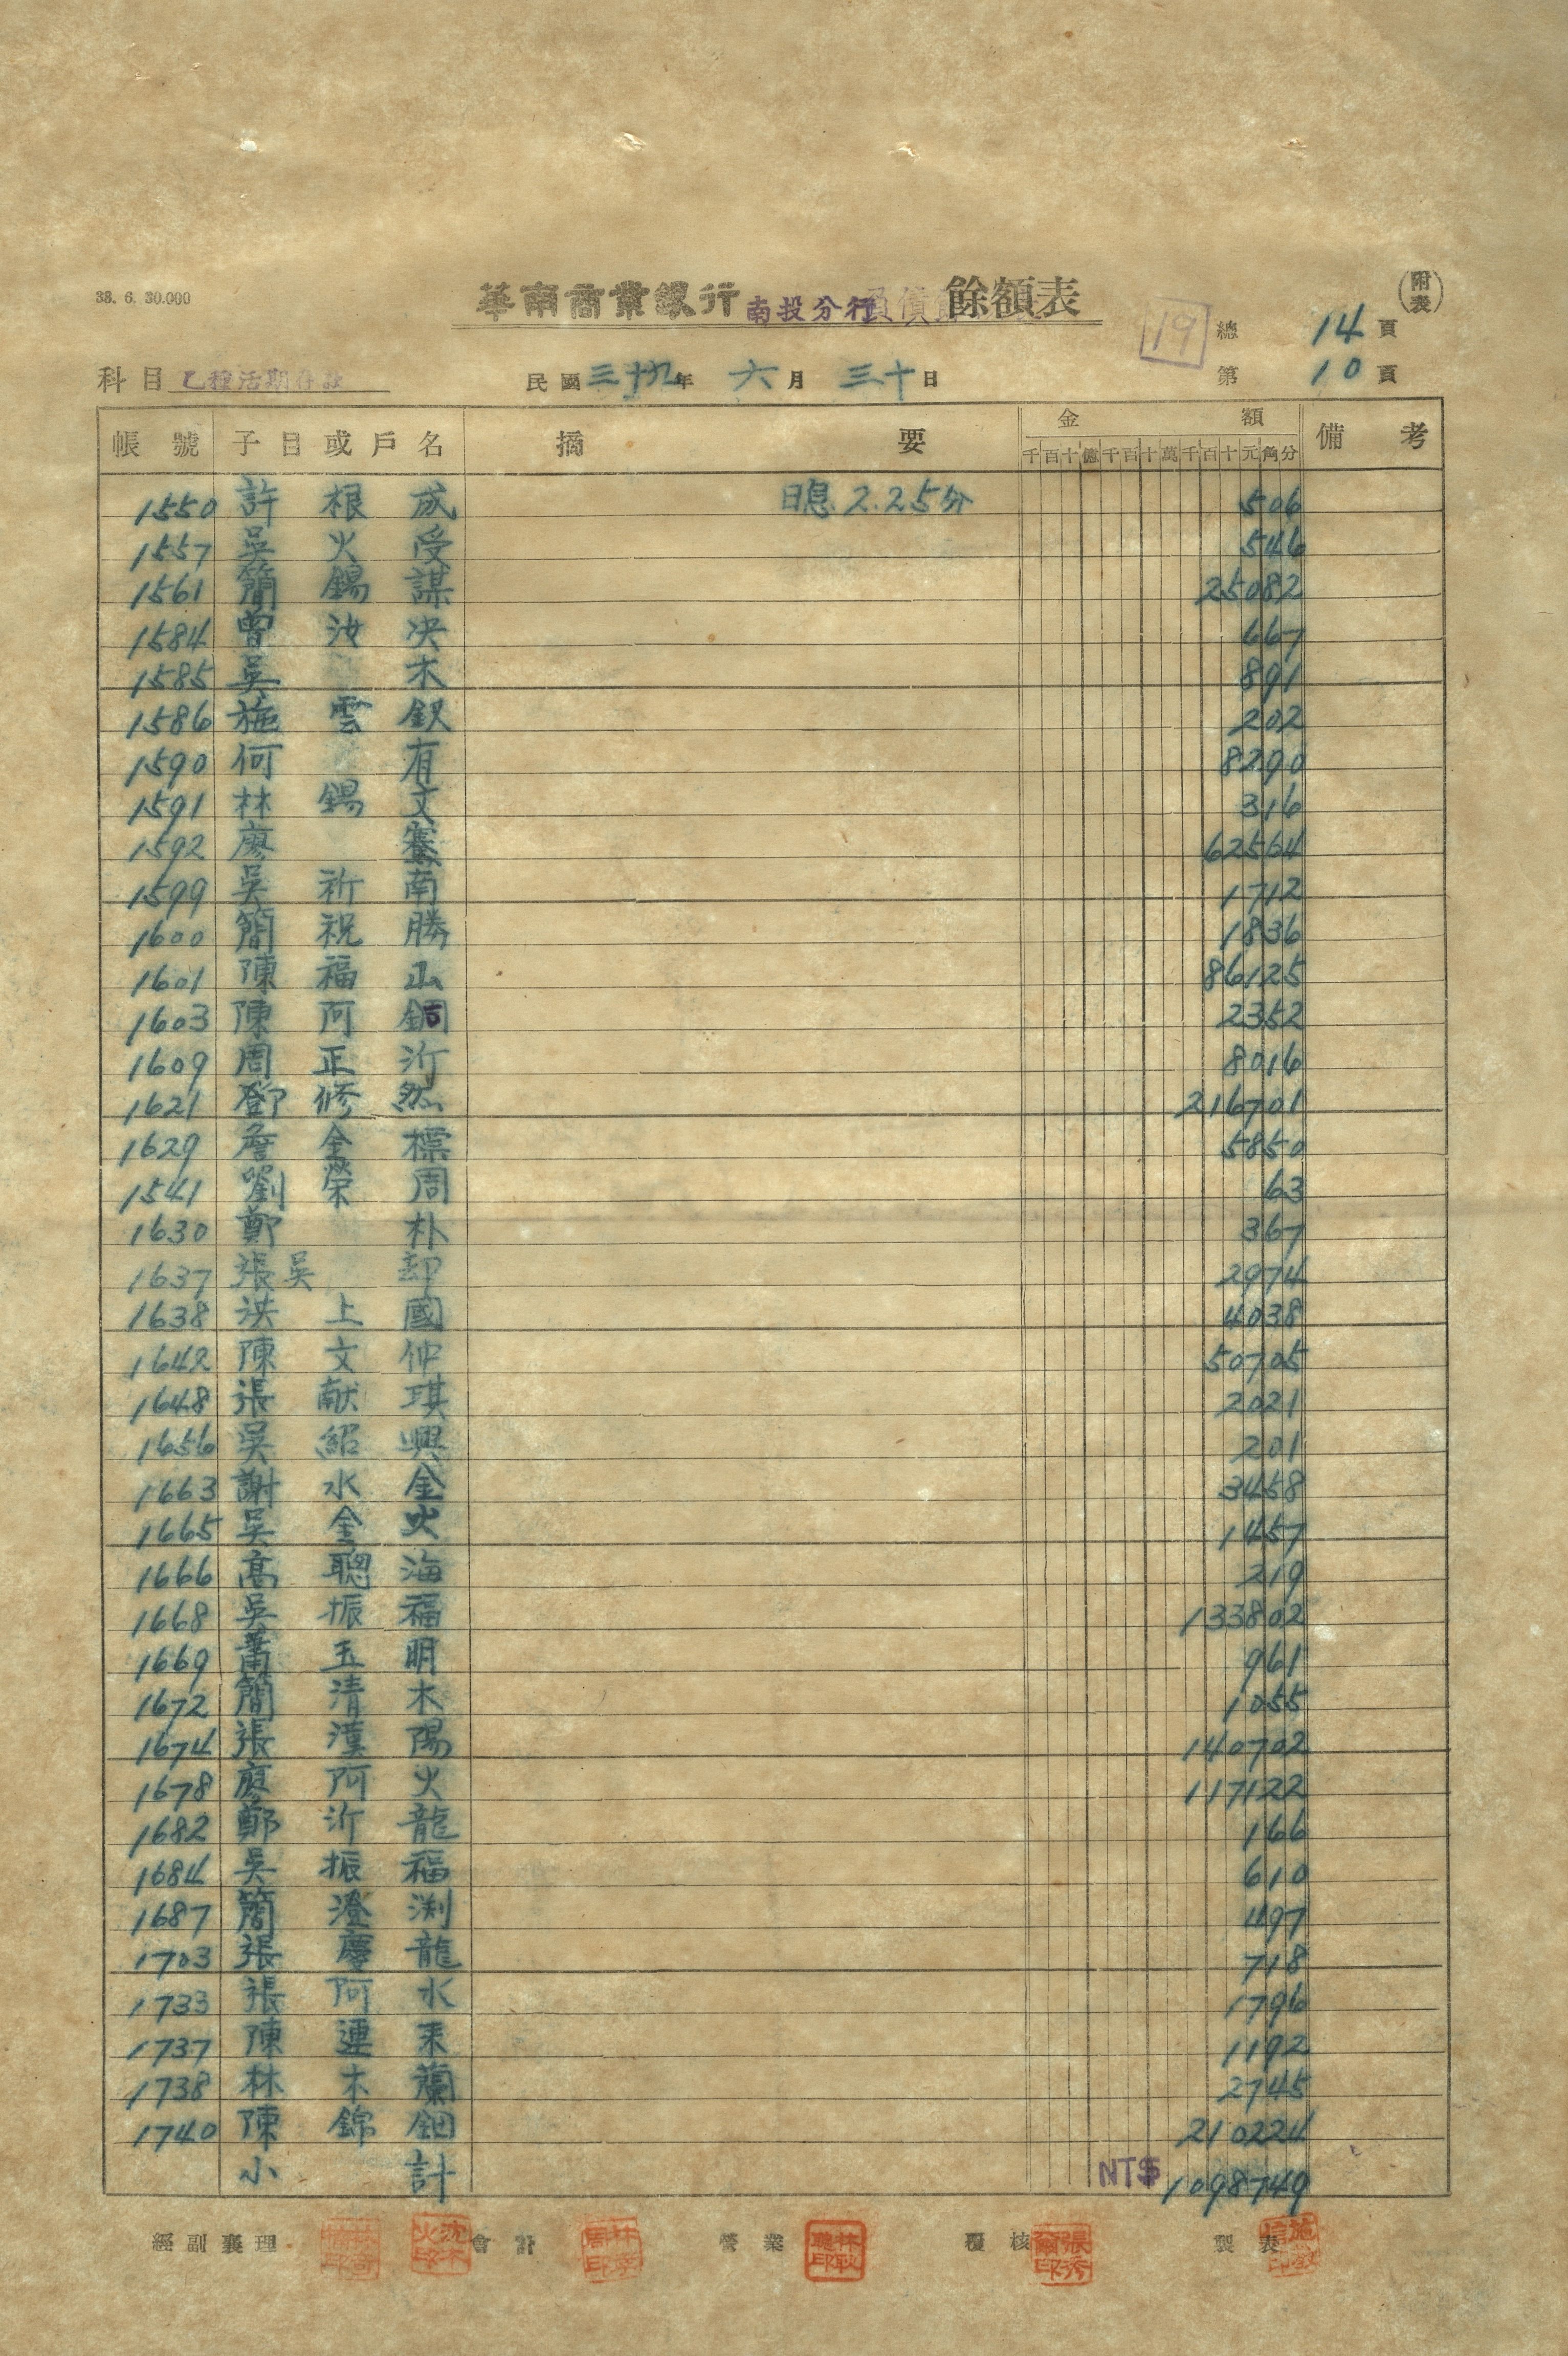 38. 6. 30.000
華南商業銀行 南投分行 負債 餘額表
(附表)
19
總 14 頁
科目 乙種活期存款
民國 三十九 年 六 月 三十 日
第 10 頁
帳號 子目或戶名 摘要 金額 備考
千百十億千百十萬千百十元角分
1550 許根成 日息 2.25分 506
1557 吳火受 546
1561 簡錫謀 25082
1584 曾汝决 667
1585 吳木 891
1586 施雲釵 202
1590 何有 8290
1591 林錫文 316
1592 廖騫 62564
1599 吳祈南 1712
1600 簡祝勝 1836
1601 陳福山 86125
1603 陳阿銅 2352
1609 周正沂 8016
1621 鄧修然 216701
1629 詹金標 5850
1541 劉榮周 63
1630 鄭朴 367
1637 張吳却 2974
1638 洪上國 4038
1642 陳文仲 50705
1648 張献琪 2021
1656 吳紹興 201
1663 謝水金 3458
1665 吳金火 1457
1666 高聰海 219
1668 吳振福 133802
1669 蕭玉明 961
1672 簡清木 1055
1674 張漢陽 140702
1678 廖阿火 117122
1682 鄭沂龍 166
1684 吳振福 610
1687 簡澄渕 497
1703 張慶龍 718
1733 張阿水 1796
1737 陳連来 1192
1738 林木蘭 2745
1740 陳錦鈿 210224
小計 NT$ 1098749
經副襄理 會計 營業 覆核 製表
林耿聰印
張秀爾印